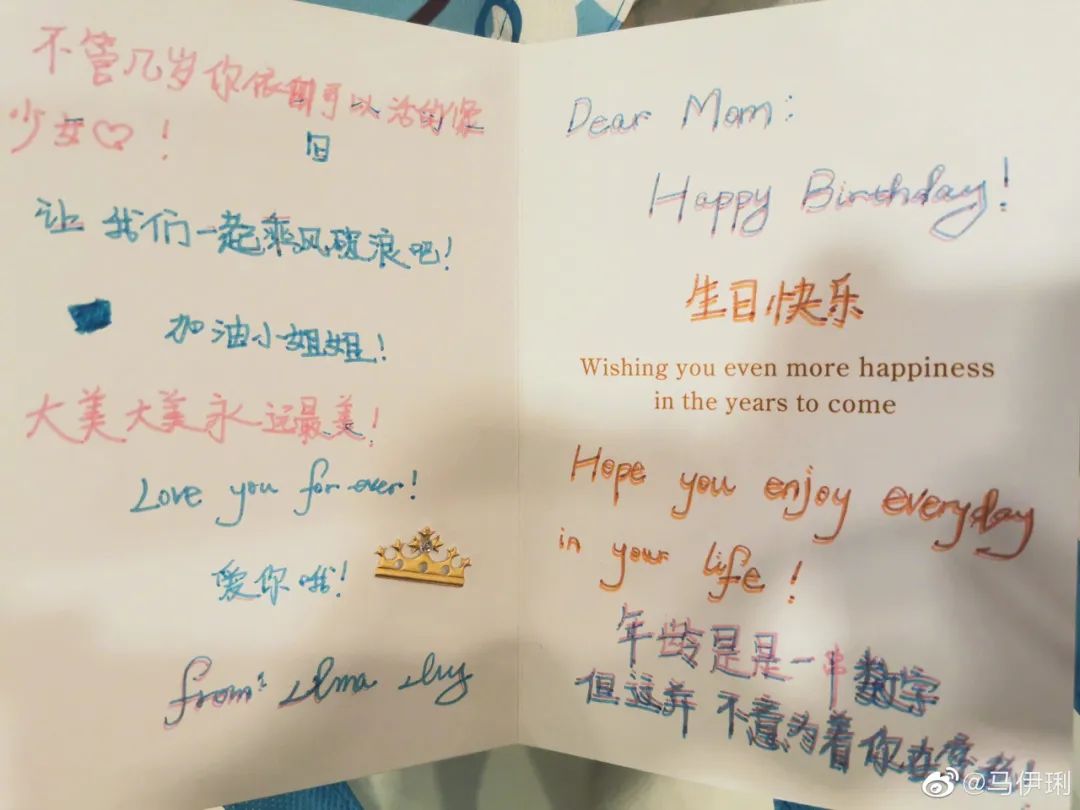 不管几岁你依可以活的像
少女♡！
旧
让我们一起乘风破浪吧！
加油小姐姐！
大美大美永远最美！
Love you for ever！
爱你哦！
from：
Dear Mom：
Happy Birthday！
生日快乐
Wishing you even more happiness
in the years to come
Hope you enjoy everyday
in your life！
年龄是是一串数字
但这并不意为着你
@马伊琍